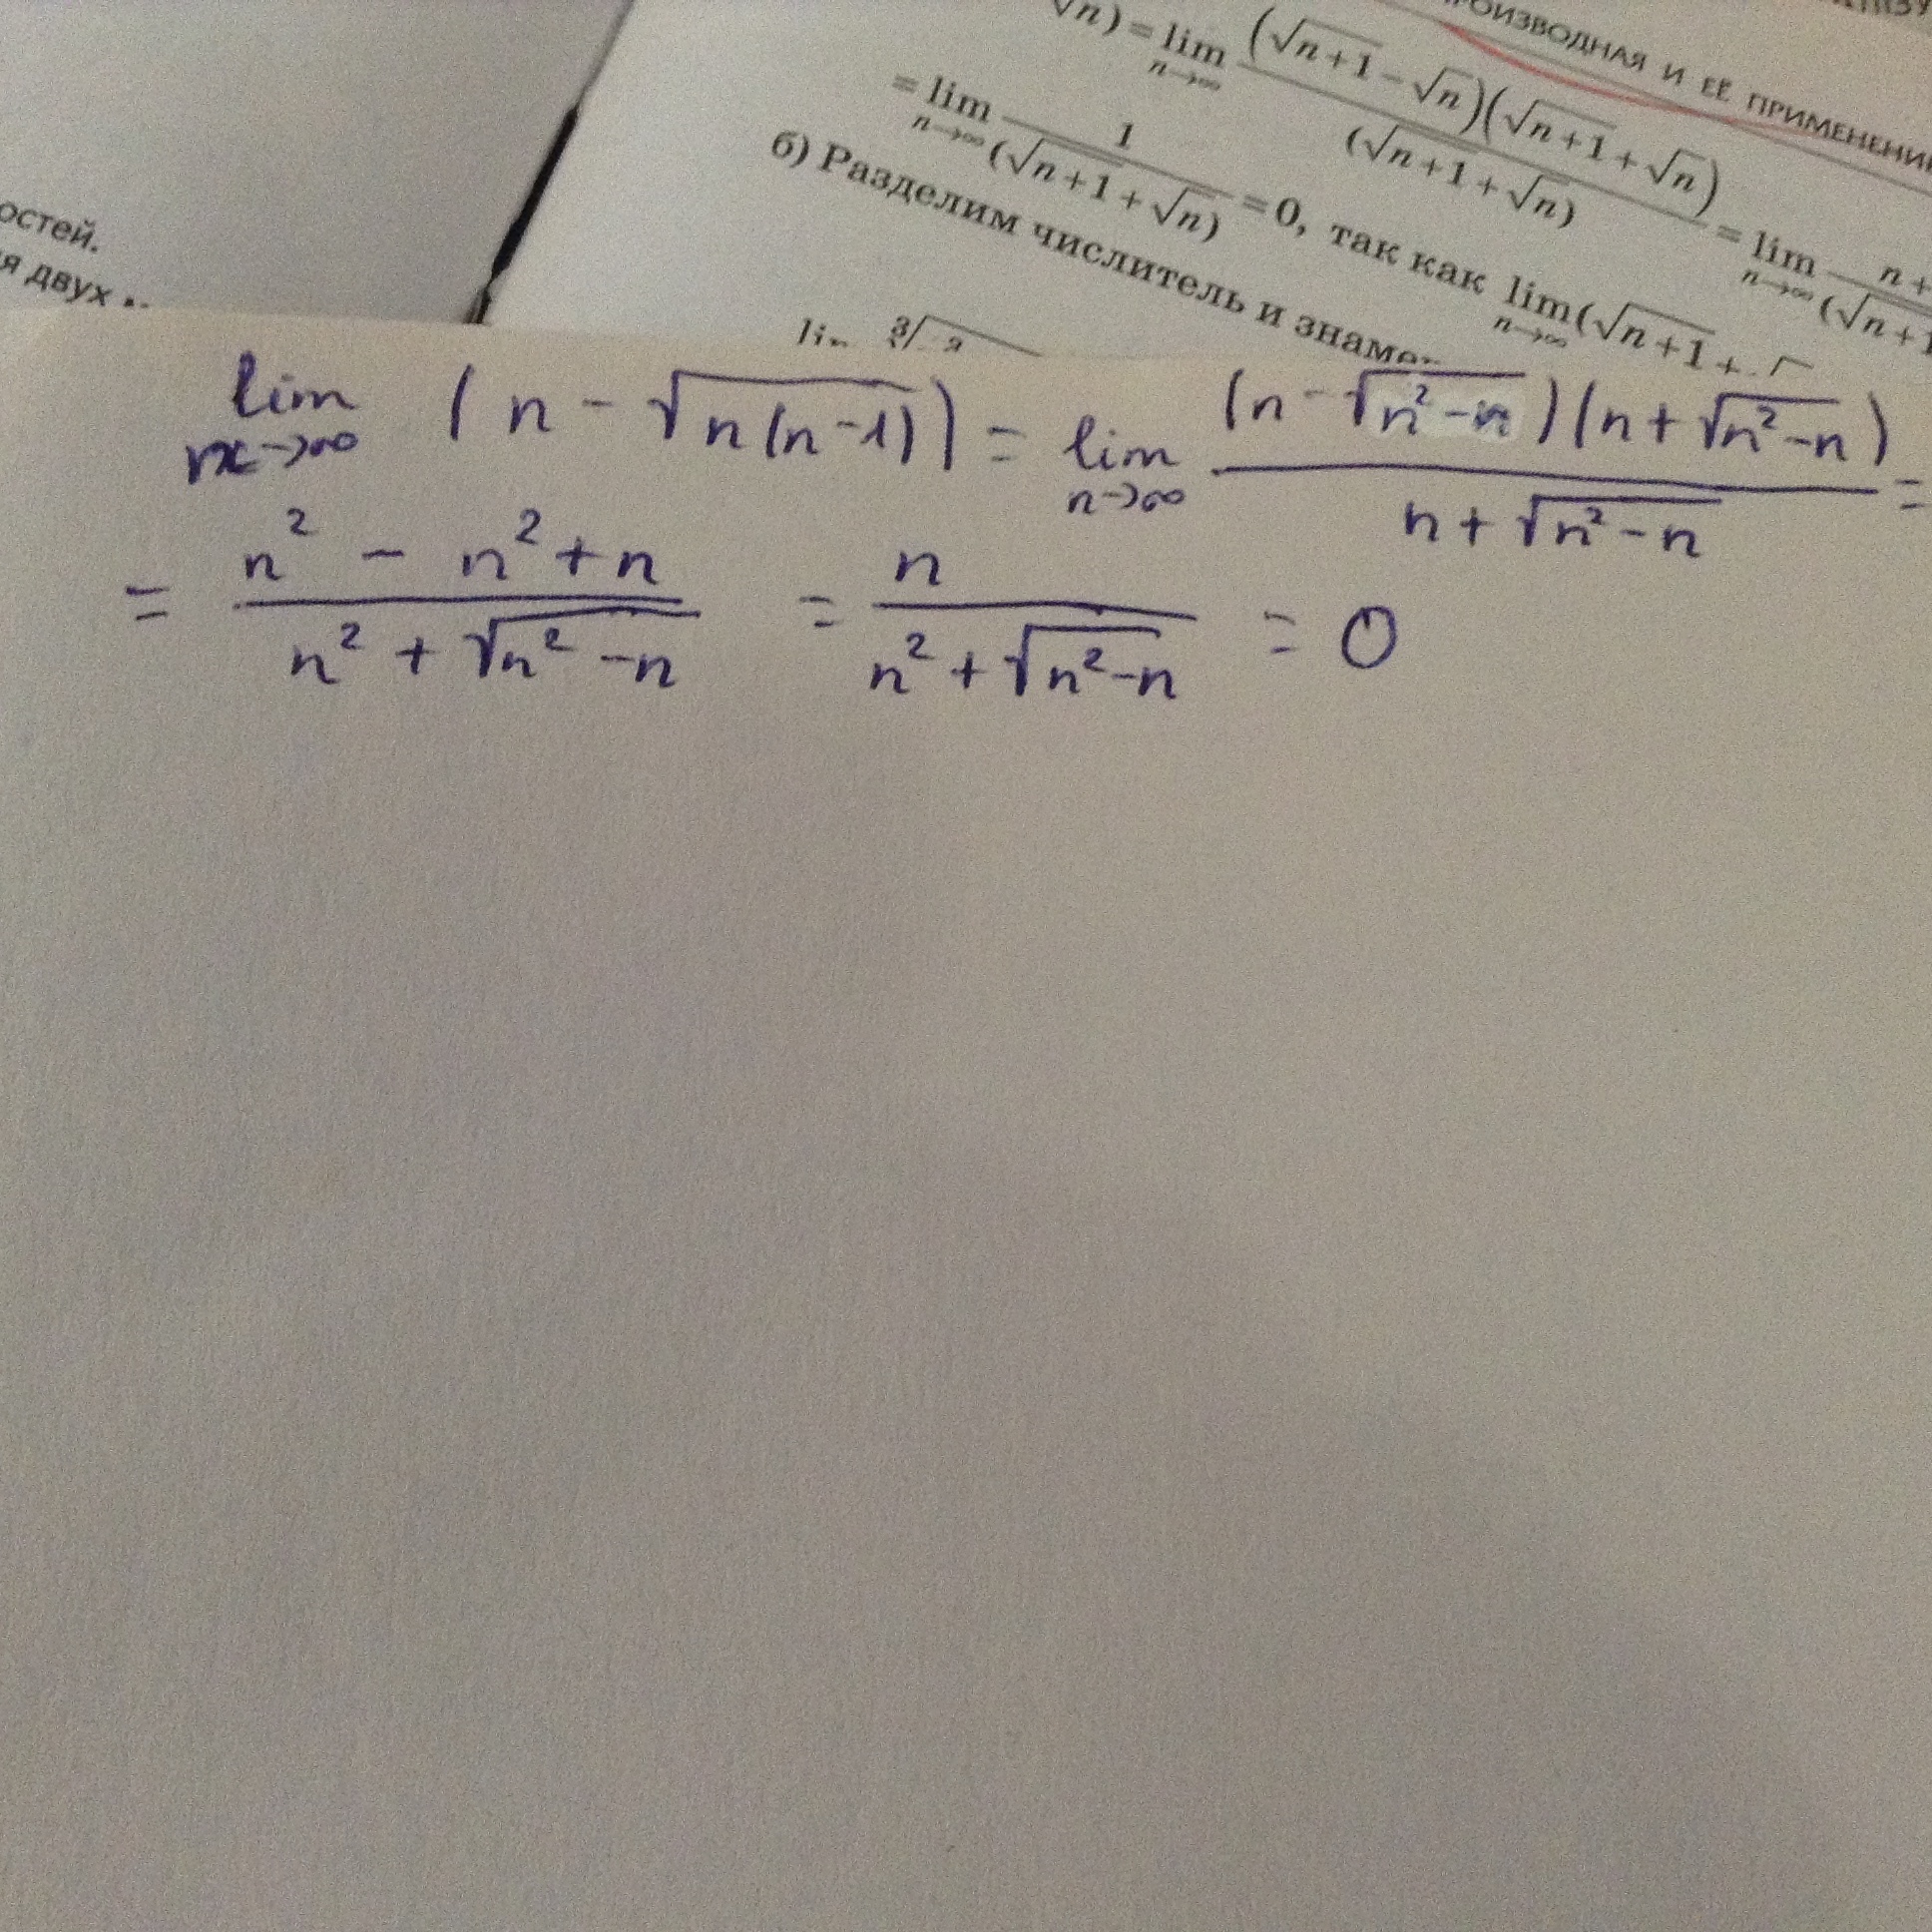 остей.
двух
ПРОИЗВОДНАЯ И ЕЁ ПРИМЕНЕНИ
√n) = lim n→∞ (√n+1 − √n)(√n+1 + √n) / (√n+1 + √n) = lim n→∞ n + / (√n+1
= lim n→∞ 1 / (√n+1 + √n) = 0, так как lim n→∞ (√n+1 +
б) Разделим числитель и
lim n→∞ (n − √n(n−1)) = lim n→∞ (n − √n²−n)(n + √n²−n) / n + √n²−n =
= n² − n² + n / n² + √n²−n = n / n² + √n²−n = 0